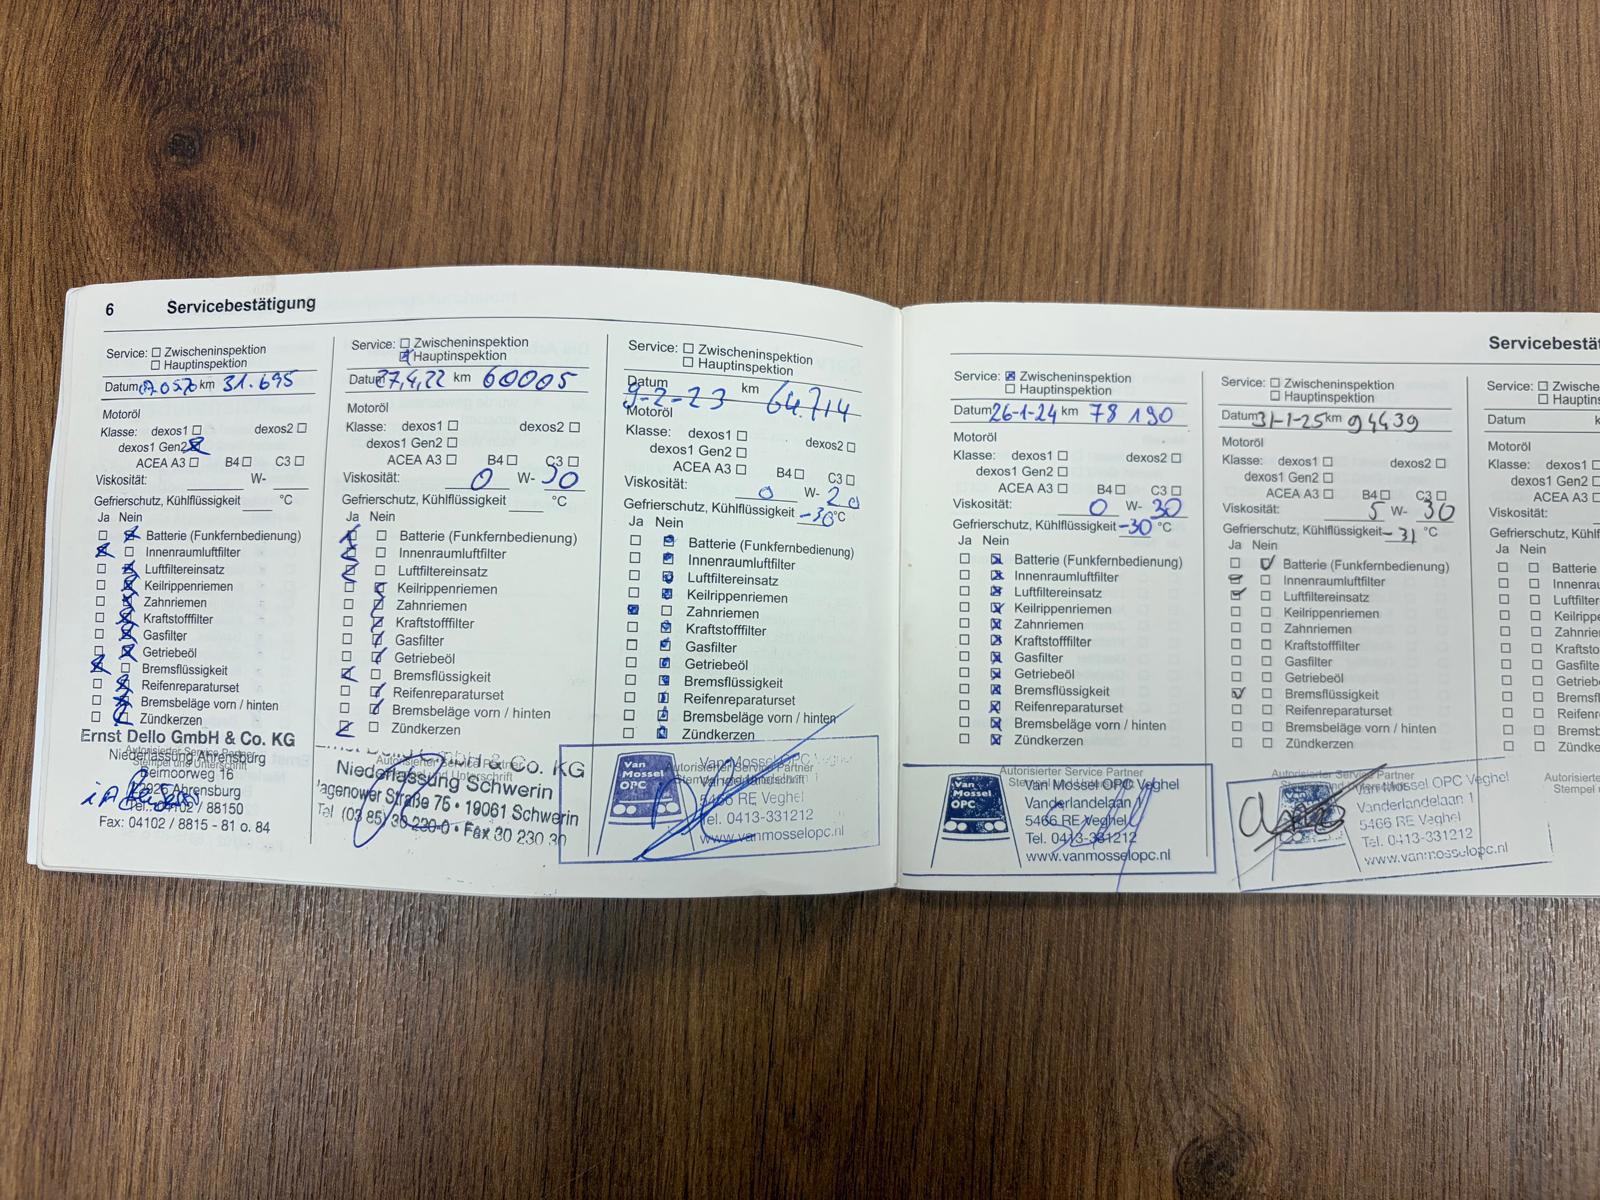 6 Servicebestätigung
Service: ☐ Zwischeninspektion
☐ Hauptinspektion
Datum km 31.695
Motoröl
Klasse: dexos1 ☐ dexos2 ☐
dexos1 Gen2 ☒
ACEA A3 ☐ B4 ☐ C3 ☐
Viskosität: W-
Gefrierschutz, Kühlflüssigkeit °C
Ja Nein
☐ ☒ Batterie (Funkfernbedienung)
☒ ☐ Innenraumluftfilter
☐ ☒ Luftfiltereinsatz
☐ ☒ Keilrippenriemen
☐ ☒ Zahnriemen
☐ ☒ Kraftstofffilter
☐ ☒ Gasfilter
☐ ☒ Getriebeöl
☒ ☐ Bremsflüssigkeit
☐ ☒ Reifenreparaturset
☐ ☒ Bremsbeläge vorn / hinten
☐ ☒ Zündkerzen
Autorisierter Service Partner
Stempel und Unterschrift
Ernst Dello GmbH & Co. KG
Niederlassung Ahrensburg
Beimoorweg 16
Ahrensburg
Tel.: 04102 / 88150
Fax: 04102 / 8815 - 81 o. 84
Service: ☐ Zwischeninspektion
☒ Hauptinspektion
Datum 27,4,22 km 60005
Motoröl
Klasse: dexos1 ☐ dexos2 ☐
dexos1 Gen2 ☐
ACEA A3 ☐ B4 ☐ C3 ☐
Viskosität: 0 W- 30
Gefrierschutz, Kühlflüssigkeit °C
Ja Nein
☒ ☐ Batterie (Funkfernbedienung)
☒ ☐ Innenraumluftfilter
☒ ☐ Luftfiltereinsatz
☐ ☒ Keilrippenriemen
☐ ☒ Zahnriemen
☐ ☒ Kraftstofffilter
☐ ☒ Gasfilter
☐ ☒ Getriebeöl
☒ ☐ Bremsflüssigkeit
☐ ☒ Reifenreparaturset
☐ ☒ Bremsbeläge vorn / hinten
☒ ☐ Zündkerzen
Autorisierter Service Partner
und Unterschrift
& Co. KG
Niederlassung Schwerin
Straße 76 • 19061 Schwerin
Tel (03 85) 30 230-0 • Fax 30 230 30
Service: ☐ Zwischeninspektion
☐ Hauptinspektion
Datum 9-2-23 km 64.714
Motoröl
Klasse: dexos1 ☐ dexos2 ☐
dexos1 Gen2 ☐
ACEA A3 ☐ B4 ☐ C3 ☐
Viskosität: 0 W- 20
Gefrierschutz, Kühlflüssigkeit -30 °C
Ja Nein
☐ ☒ Batterie (Funkfernbedienung)
☐ ☒ Innenraumluftfilter
☐ ☒ Luftfiltereinsatz
☐ ☒ Keilrippenriemen
☒ ☐ Zahnriemen
☐ ☒ Kraftstofffilter
☐ ☒ Gasfilter
☐ ☒ Getriebeöl
☐ ☒ Bremsflüssigkeit
☐ ☒ Reifenreparaturset
☐ ☒ Bremsbeläge vorn / hinten
☐ ☒ Zündkerzen
Autorisierter Service Partner
Van Mossel OPC
Van Mossel OPC Veghel
Vanderlandelaan 1
5466 RE Veghel
Tel. 0413-331212
www.vanmosselopc.nl
Service: ☒ Zwischeninspektion
☐ Hauptinspektion
Datum 26-1-24 km 78 190
Motoröl
Klasse: dexos1 ☐ dexos2 ☐
dexos1 Gen2 ☐
ACEA A3 ☐ B4 ☐ C3 ☐
Viskosität: 0 W- 30
Gefrierschutz, Kühlflüssigkeit -30 °C
Ja Nein
☐ ☒ Batterie (Funkfernbedienung)
☐ ☒ Innenraumluftfilter
☐ ☒ Luftfiltereinsatz
☐ ☒ Keilrippenriemen
☐ ☒ Zahnriemen
☐ ☒ Kraftstofffilter
☐ ☒ Gasfilter
☐ ☒ Getriebeöl
☐ ☒ Bremsflüssigkeit
☐ ☒ Reifenreparaturset
☐ ☒ Bremsbeläge vorn / hinten
☐ ☒ Zündkerzen
Autorisierter Service Partner
Van Mossel OPC
Van Mossel OPC Veghel
Vanderlandelaan 1
5466 RE Veghel
Tel. 0413-331212
www.vanmosselopc.nl
Service: ☐ Zwischeninspektion
☐ Hauptinspektion
Datum 31-1-25 km 94439
Motoröl
Klasse: dexos1 ☐ dexos2 ☐
dexos1 Gen2 ☐
ACEA A3 ☐ B4 ☐ C3 ☐
Viskosität: 5 W- 30
Gefrierschutz, Kühlflüssigkeit -31 °C
Ja Nein
☐ ☒ Batterie (Funkfernbedienung)
☒ ☐ Innenraumluftfilter
☒ ☐ Luftfiltereinsatz
☐ ☐ Keilrippenriemen
☐ ☐ Zahnriemen
☐ ☐ Kraftstofffilter
☐ ☐ Gasfilter
☐ ☐ Getriebeöl
☒ ☐ Bremsflüssigkeit
☐ ☐ Reifenreparaturset
☐ ☐ Bremsbeläge vorn / hinten
☐ ☐ Zündkerzen
Autorisierter Service Partner
Van Mossel OPC Veghel
Vanderlandelaan 1
5466 RE Veghel
Tel. 0413-331212
www.vanmosselopc.nl
Servicebestät
Service: ☐ Zwische
☐ Hauptins
Datum k
Motoröl
Klasse: dexos1 ☐
dexos1 Gen2 ☐
ACEA A3 ☐
Viskosität:
Gefrierschutz, Kühlfl
Ja Nein
☐ ☐ Batterie
☐ ☐ Innenra
☐ ☐ Luftfilter
☐ ☐ Keilripp
☐ ☐ Zahnrie
☐ ☐ Kraftsto
☐ ☐ Gasfilte
☐ ☐ Getrieb
☐ ☐ Bremsf
☐ ☐ Reifenr
☐ ☐ Bremsb
☐ ☐ Zündke
Autorisierte
Stempel